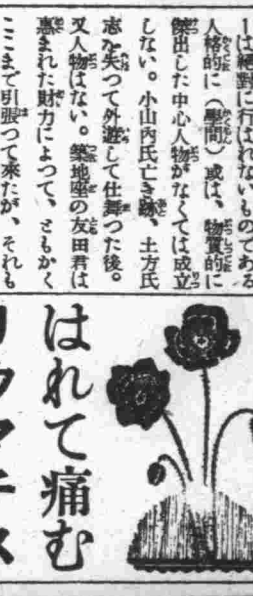 ーは絕對に行はれないものである
人格的に（學問）或は、物質的に
傑出した中心人物がなくては成立
しない。小山內氏亡き跡、土方氏
志を失つて外遊して仕舞つた後。
又人物はない。築地座の友田君は
惠まれた財力によつて、ともかく
ここまで引張つて來たが、それも
はれて痛む
リウマチス